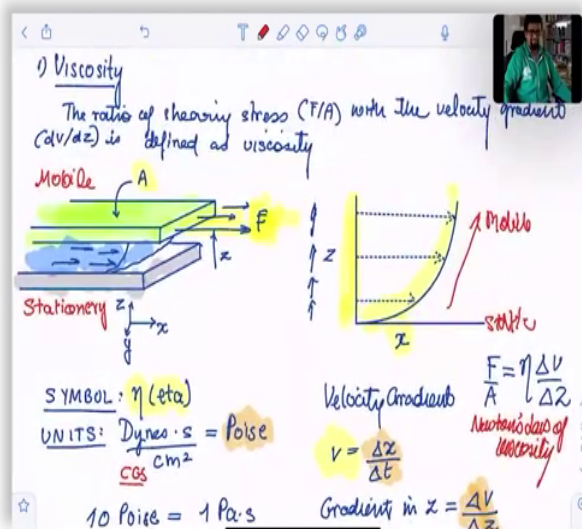 1) Viscosity
The ratio of shearing stress (F/A) with the velocity gradient
(dv/dz) is defined as viscosity
Mobile
A
F
z
Stationery
z
x
y
z
Mobile
static
x
SYMBOL: η (eta)
UNITS: Dynes·s / cm² = Poise
CGS
10 Poise = 1 Pa·s
Velocity Gradient
v = Δx / Δt
Gradient in z = ΔV / ΔZ
F/A = η ΔV/ΔZ
Newton's Law of
Viscosity